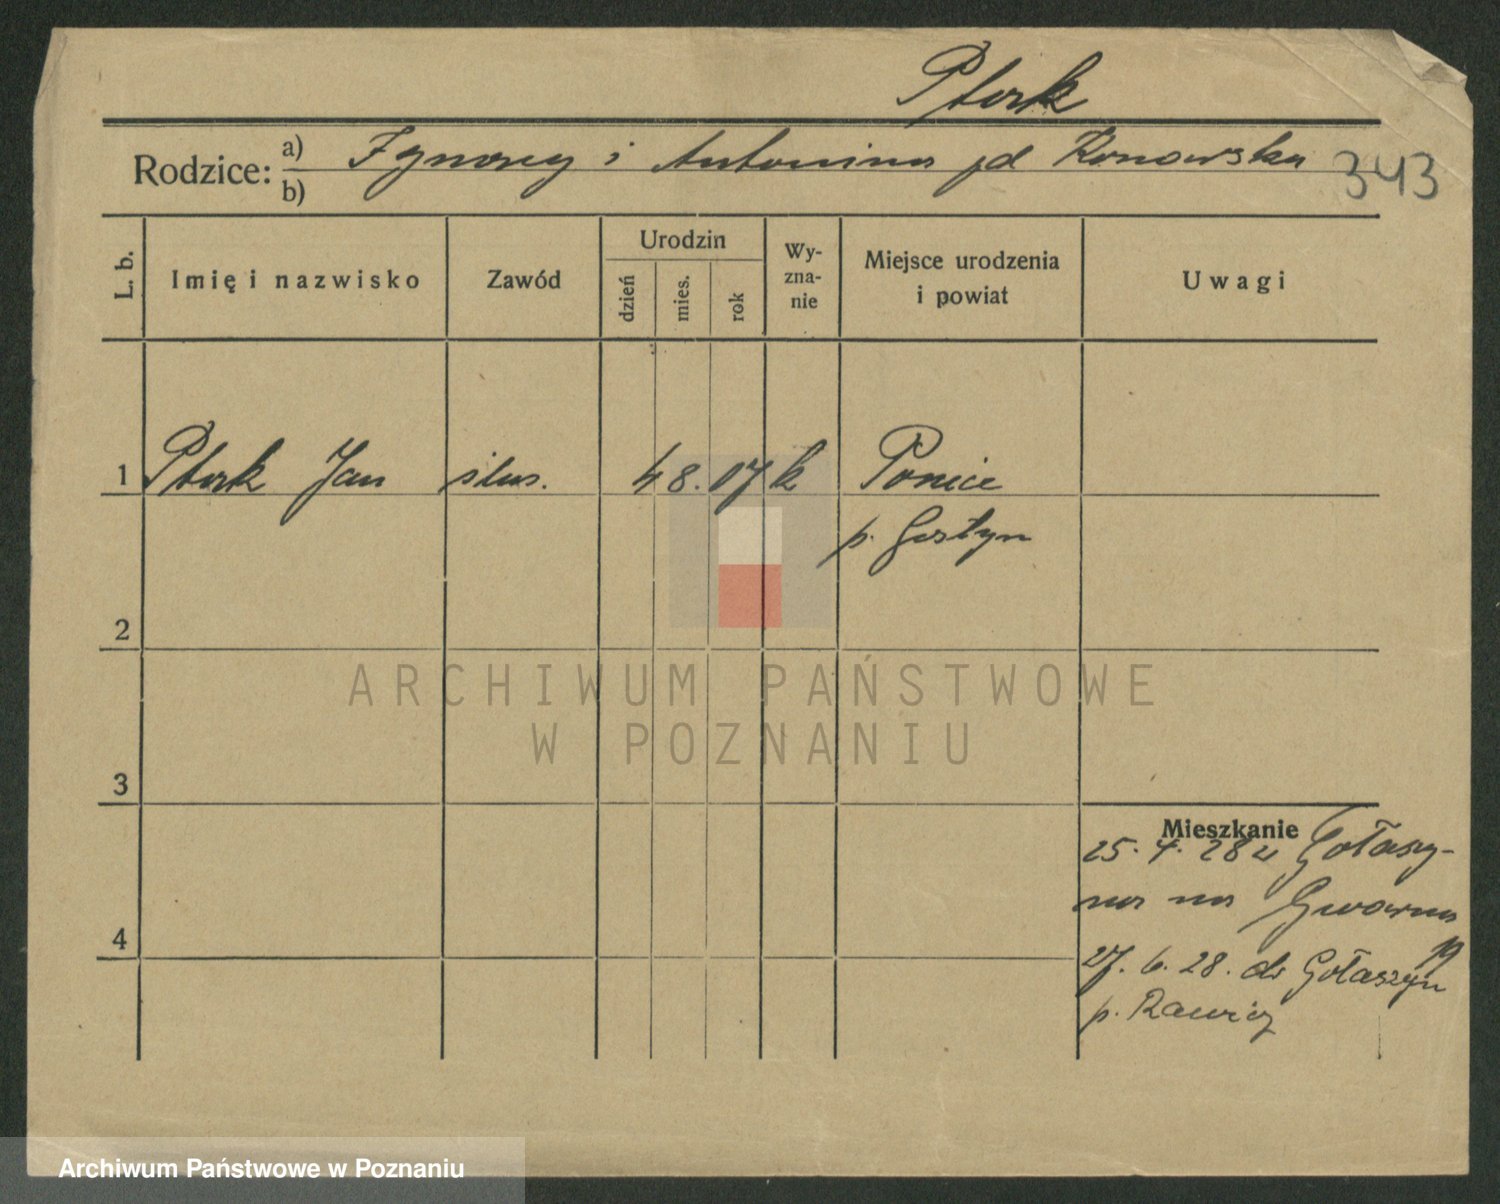 Ptak
Rodzice: a) Ignacy i Antonina zd Konowska 343
b)
L. b. Imię i nazwisko Zawód Urodzin dzień mies. rok Wy-zna-nie Miejsce urodzenia i powiat Uwagi
1 Ptak Jan ślus. 4 8. 07 k Ponice
p. Gostyn
2
ARCHIWUM PAŃSTWOWE
W POZNANIU
3
Mieszkanie
25. 4. 28 z Gołaszy-
na na Gwarna
19
27. 6. 28. do Gołaszyn
p. Rawicz
4
Archiwum Państwowe w Poznaniu